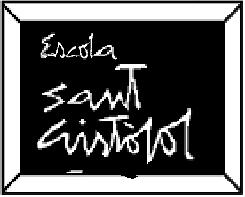 Escola
Sant
Cristòfol